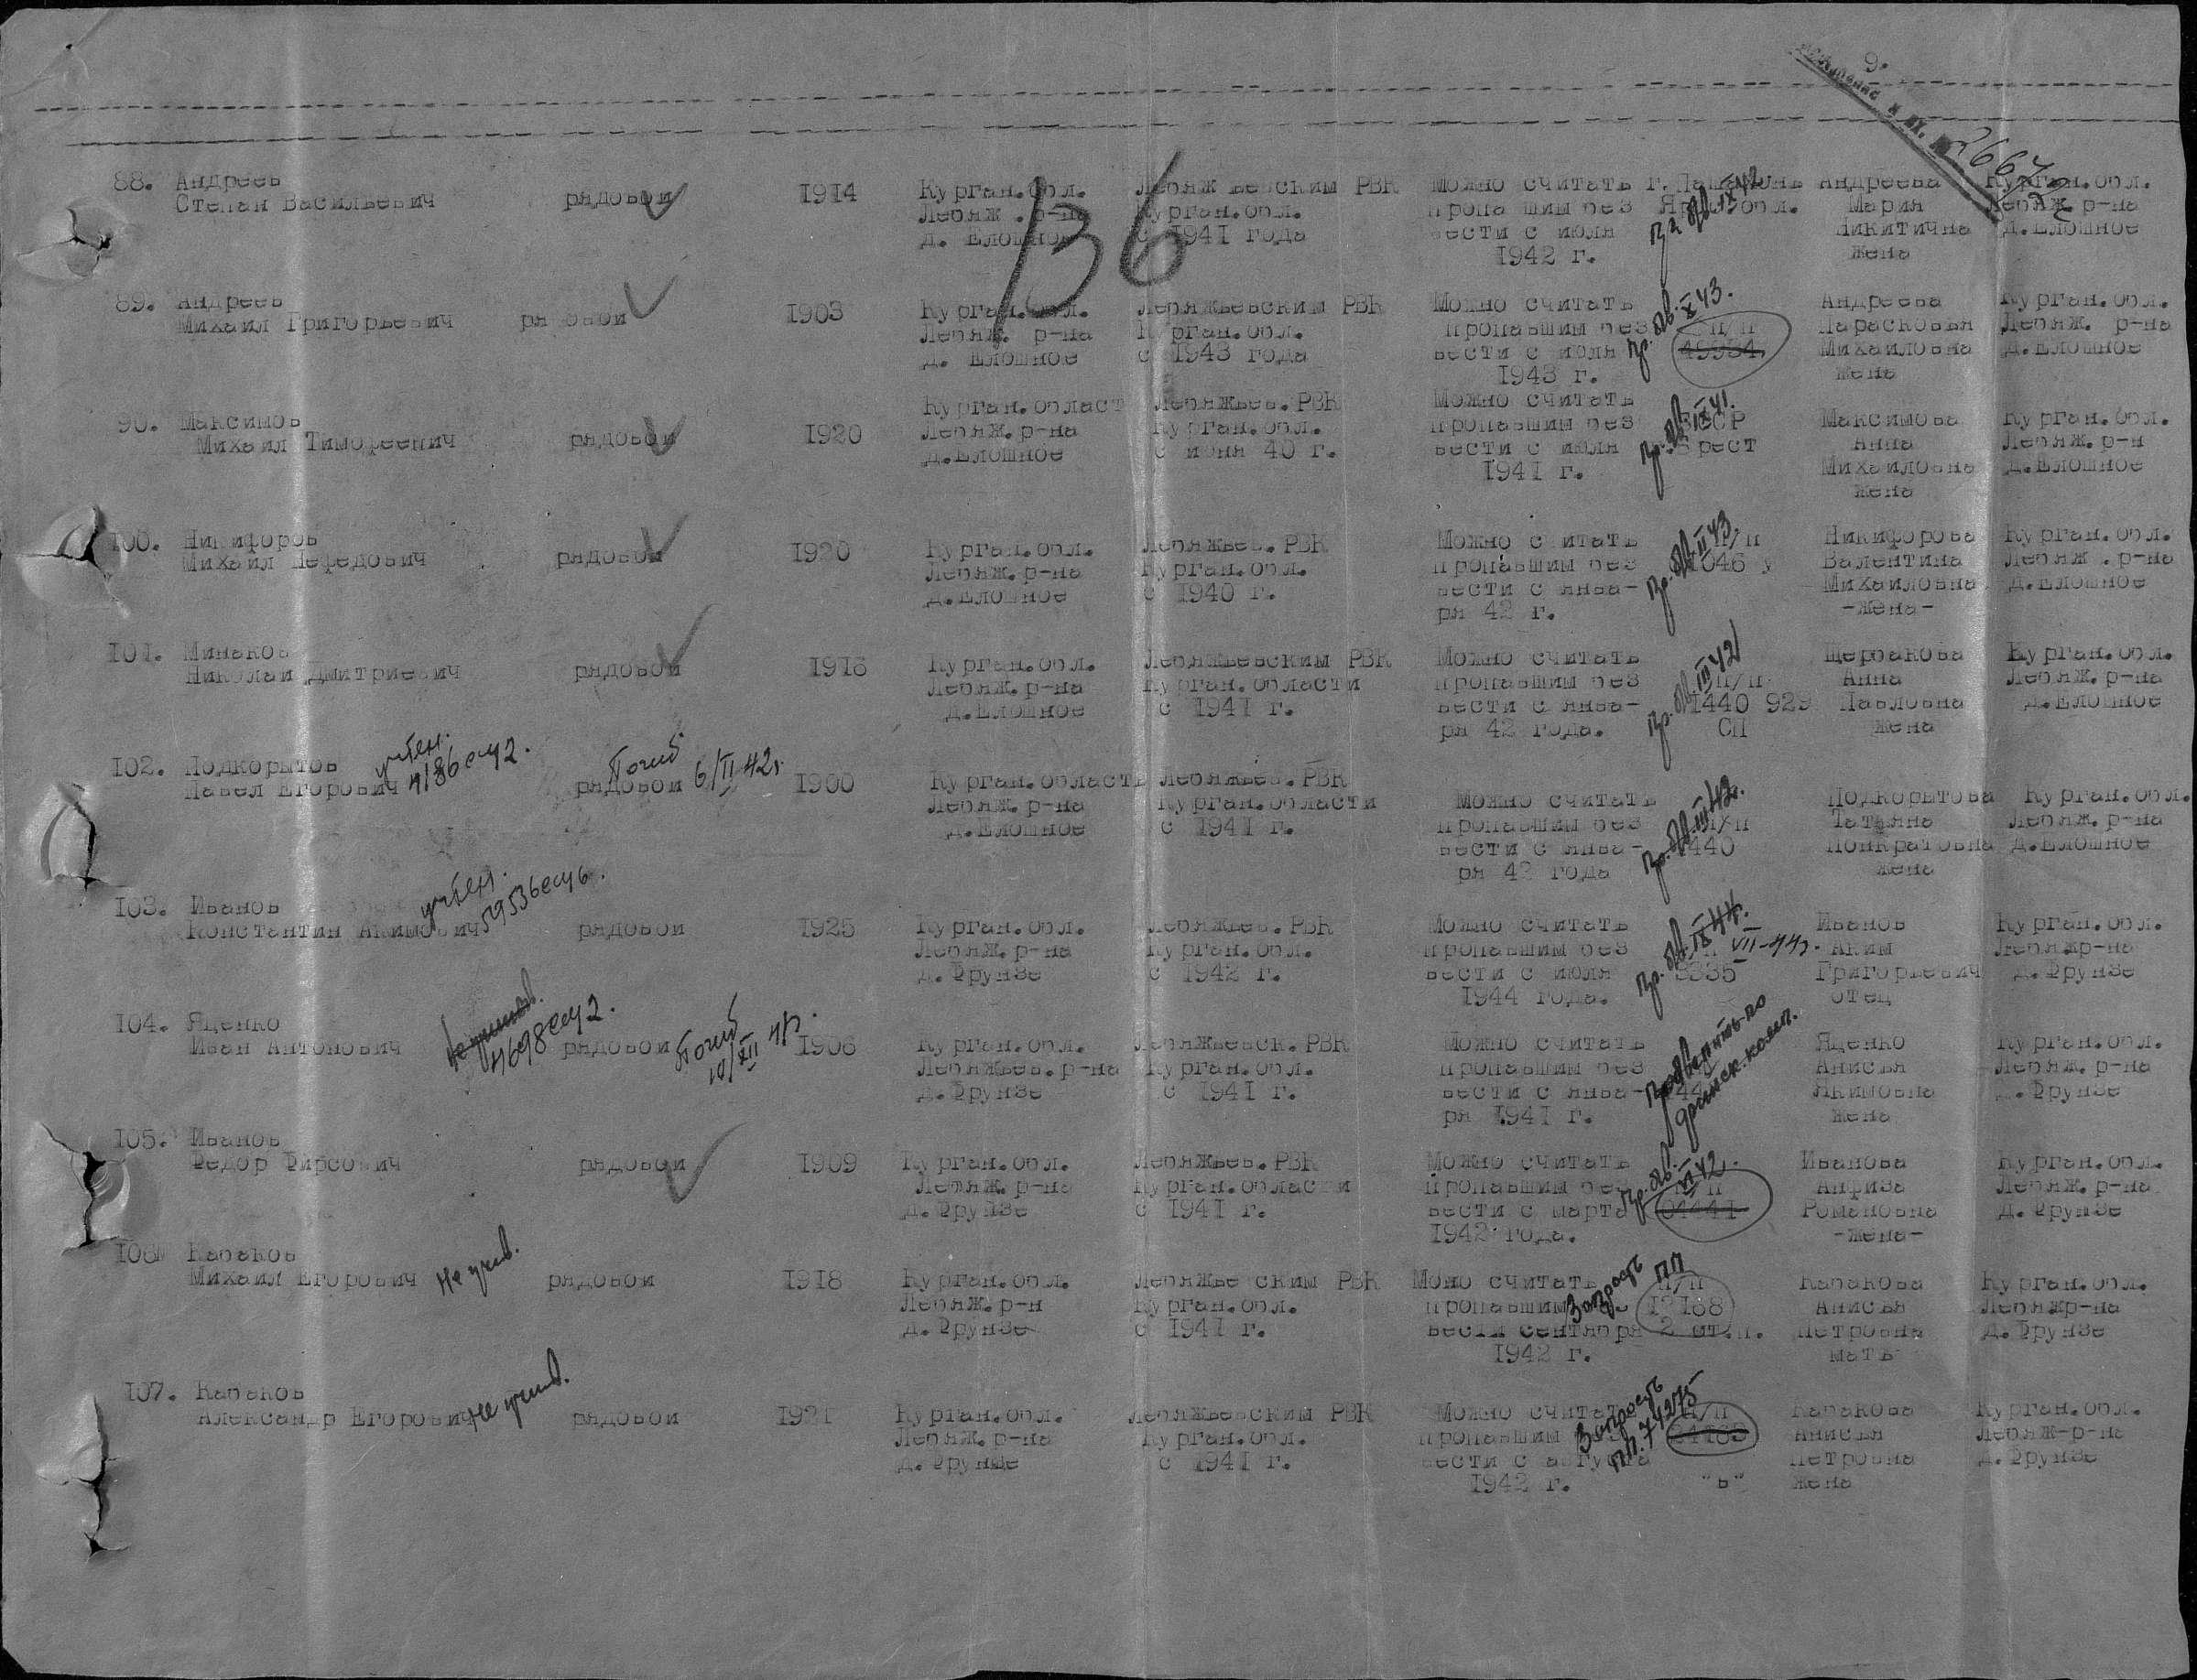 9.
2667
136
88. Андреев
Степан Васильевич рядовой 1914 Курган.обл. Лебяж ьевским РВК Можно считать Андреева Курган.обл.
Лебяж. р-на Курган.обл. пропа шим без Мария Лебяж. р-на
д. Елошное с 1941 года вести с июля Никитична д.Елошное
1942 г. жена
89. Андреев
Михаил Григорьевич рядовой 1903 Курган.обл. Лебяжьевским РВК Можно считать Андреева Курган.обл.
Лебяж. р-на Курган.обл. пропавшим без п/п Парасковья Лебяж. р-на
д. Елошное с 1943 года вести с июля 49934 Михайловна д.Елошное
1943 г. жена
Курган.област Лебяжьев.РВК Можно считать
90. Максимов
Михаил Тимофеевич рядовой 1920 Лебяж.р-на Курган.обл. пропавшим без Максимова Курган.обл.
д.Елошное с июня 40 г. вести с июля Брест Анна Лебяж.р-н
1941 г. Михайловна д.Елошное
жена
100. Никифоров
Михаил Нефедович рядовой 1920 Курган.обл. Лебяжьев.РВК Можно считать п/п Никифорова Курган.обл.
Лебяж.р-на Курган.обл. пропавшим без Валентина Лебяж.р-на
д.Елошное с 1940 г. вести с янва- Михайловна д.Елошное
ря 42 г. -жена-
101. Минаков
Николай Дмитриевич рядовой 1918 Курган.обл. Лебяжьевским РВК Можно считать Щербакова Курган.обл.
Лебяж.р-на Курган.области пропавшим без п/п Анна Лебяж.р-на
д.Елошное с 1941 г. вести с янва- 1440 929 Павловна д.Елошное
ря 42 года. СП жена
учтен. Погиб
102. Подкорытов 4186 6/II 42г.
Павел Егорович рядовой 1900 Курган.область Лебяжьев.РВК
Лебяж.р-на Курган.области Можно считать Подкорытова Курган.обл.
д.Елошное с 1941 г. пропавшим без п/п Татьяна Лебяж.р-на
вести с янва- 1440 Понкратовна д.Елошное
ря 42 года жена
учтен.
103. Иванов 59536
Константин Акимович рядовой 1925 Курган.обл. Лебяжьев.РВК Можно считать Иванов Курган.обл.
Лебяж.р-на Курган.обл. пропавшим без VII-44г. Аким Лебяжр-на
д.Фрунзе с 1942 г. вести с июля Григорьевич д.Фрунзе
1944 года. отец
104. Яценко 4698 Погиб
Иван Антонович рядовой 10/XII 41г. 1906 Курган.обл. Лебяжьевск.РВК Можно считать Яценко Курган.обл.
Лебяжьев.р-на Курган.обл. пропавшим без Анисья Лебяж.р-на
д.Фрунзе с 1941 г. вести с янва- Якимовна д.Фрунзе
ря 1941 г. жена
105. Иванов
Федор Фирсович рядовой 1909 Курган.обл. Лебяжьев.РВК Можно считать Иванова Курган.обл.
Лебяж.р-на Курган.области пропавшим без п/п Анфиза Лебяж.р-на
д.Фрунзе с 1941 г. вести с марта 04441 Романовна д.Фрунзе
1942 года. -жена-
106 Кабаков Не учтен.
Михаил Егорович рядовой 1918 Курган.обл. Лебяжье ским РВК Моно считать п/п Кабакова Курган.обл.
Лебяж.р-н Курган.обл. пропавшим Анисья Лебяжр-на
д.Фрунзе с 1941 г. вести сентября Петровна д.Фрунзе
1942 г. Запросить ПП мать
107. Кабаков Не учтен.
Александр Егорович рядовой 1921 Курган.обл. Лебяжьевским РВК Можно считать п/п Кабакова Курган.обл.
Лебяж.р-на Курган.обл. пропавшим Анисья Лебяж-р-на
д.Фрунзе с 1941 г. вести с августа Петровна д.Фрунзе
1942 г. "Б" жена
Запросить
пп.74275